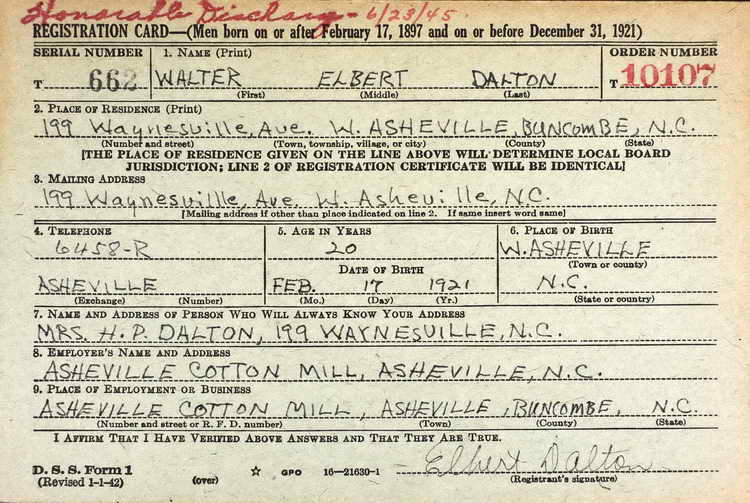 Honorable Discharg - 6/23/45.
REGISTRATION CARD—(Men born on or after February 17, 1897 and on or before December 31, 1921)
SERIAL NUMBER 1. NAME (Print) ORDER NUMBER
T 662 WALTER ELBERT DALTON T 10107
(First) (Middle) (Last)
2. PLACE OF RESIDENCE (Print)
199 Waynesville, Ave. W. ASHEVILLE, BUNCOMBE, N.C.
(Number and street) (Town, township, village, or city) (County) (State)
[THE PLACE OF RESIDENCE GIVEN ON THE LINE ABOVE WILL DETERMINE LOCAL BOARD
JURISDICTION; LINE 2 OF REGISTRATION CERTIFICATE WILL BE IDENTICAL]
3. MAILING ADDRESS
199 Waynesville, Ave. W. Asheville, N.C.
[Mailing address if other than place indicated on line 2. If same insert word same]
4. TELEPHONE 5. AGE IN YEARS 6. PLACE OF BIRTH
6458-R 20 W. ASHEVILLE
DATE OF BIRTH (Town or county)
ASHEVILLE FEB. 17 1921 N.C.
(Exchange) (Number) (Mo.) (Day) (Yr.) (State or country)
7. NAME AND ADDRESS OF PERSON WHO WILL ALWAYS KNOW YOUR ADDRESS
MRS. H. P. DALTON, 199 WAYNESVILLE, N.C.
8. EMPLOYER'S NAME AND ADDRESS
ASHEVILLE COTTON MILL, ASHEVILLE, N.C.
9. PLACE OF EMPLOYMENT OR BUSINESS
ASHEVILLE COTTON MILL, ASHEVILLE, BUNCOMBE, N.C.
(Number and street or R. F. D. number) (Town) (County) (State)
I AFFIRM THAT I HAVE VERIFIED ABOVE ANSWERS AND THAT THEY ARE TRUE.
Elbert Dalton
D. S. S. Form 1
(Revised 1-1-42) (over) ☆ GPO 16—21630-1 (Registrant's signature)